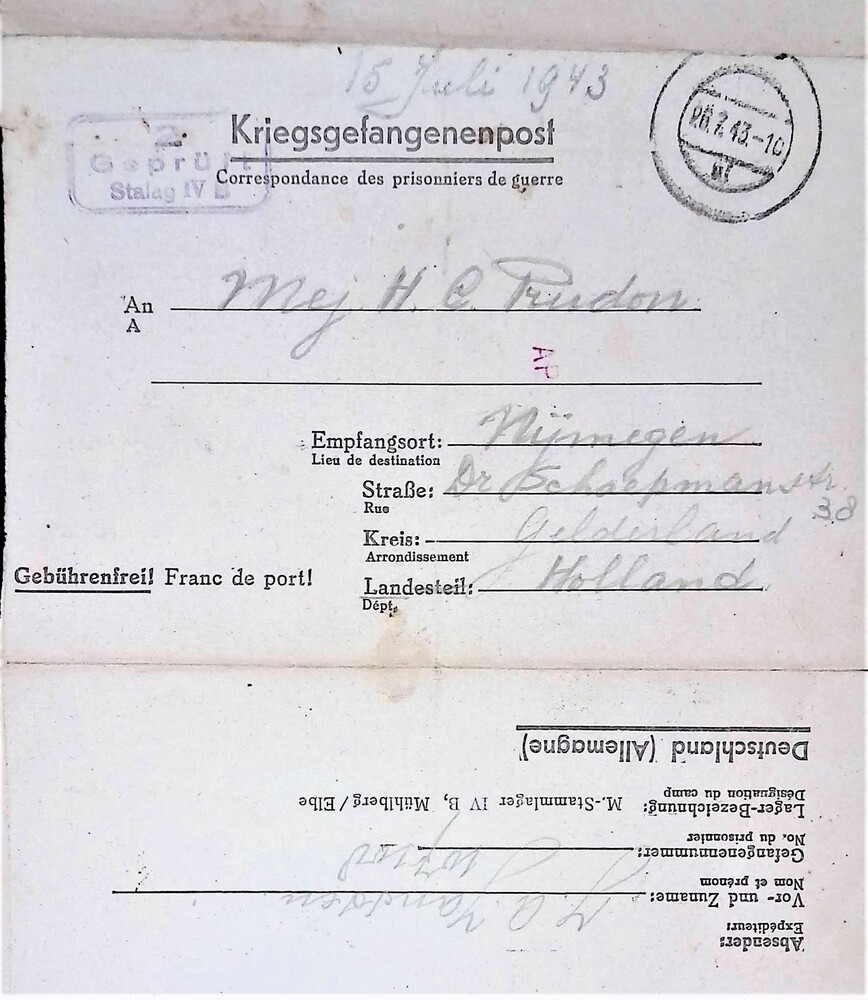 15 Juli 1943
Kriegsgefangenenpost
Correspondance des prisonniers de guerre
2
Geprüft
Stalag IV B
26.7.43.-10
An Mej H. C. Prudon
A
AP
Empfangsort: Nijmegen
Lieu de destination
Straße: Dr Schaepmanstr
Rue
38
Kreis: Gelderland
Arrondissement
Gebührenfrei! Franc de port!
Landesteil: Holland
Dépt.
Absender:
Expéditeur:
Vor- und Zuname: Janssen
Nom et prénom
Gefangenennummer:
No. du prisonnier
Lager-Bezeichnung: M.-Stammlager IV B, Mühlberg/Elbe
Désignation du camp
Deutschland (Allemagne)